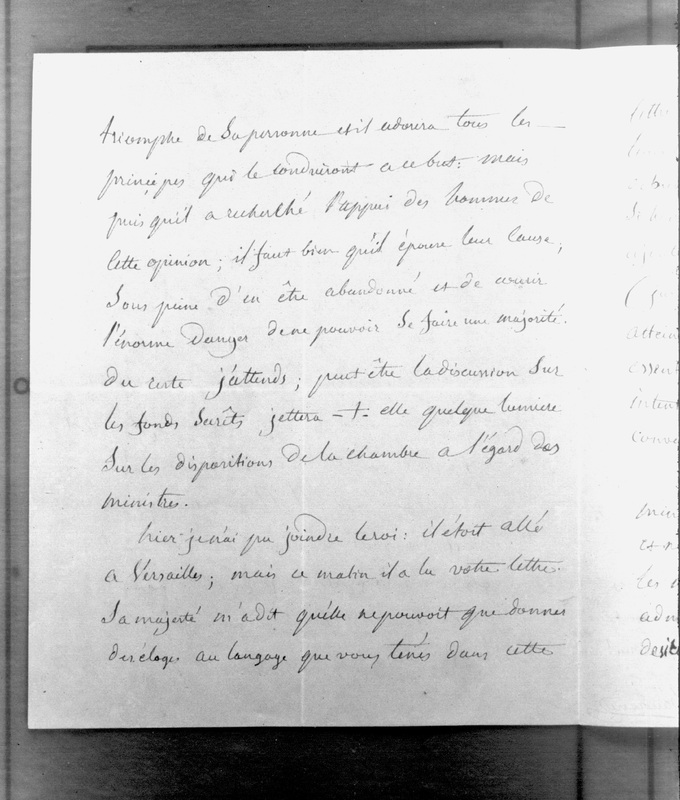 triomphe de sa personne et il adorera tous les —
principes qui le conduiront a ce but: mais
puis qu'il a recherché l'appui des hommes de
cette opinion; il faut bien qu'il épouse leur cause;
sous peine d'en être abandonné et de courir
l'énorme danger de ne pouvoir se faire une majorité.
du reste j'attends; peut être la discussion sur
les fonds jettera -t- elle quelque lumiere
sur les dispositions de la chambre a l'égard des
ministres.
hier je n'ai pu joindre le roi: il étoit allé
a Versailles; mais ce matin il a lu votre lettre.
Sa majesté m'a dit qu'elle ne pouvoit que donner
des éloges au langage que vous tenés dans cette